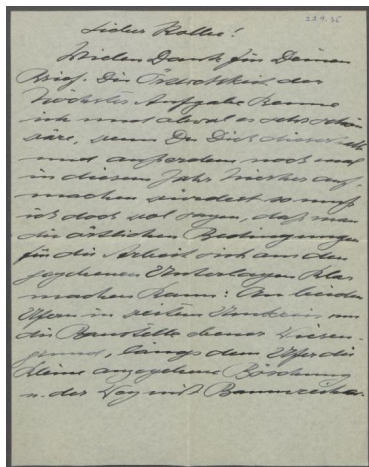 23.4.35
Lieber Kolbe!
Vielen Dank für Deinen
Brief. Die der
Aufgabe kenne
ich und obwol es sehr schön
wäre, wenn Du Dich
und außerdem noch mal
in diesem Jahr hierher auf
machen würdest so muß
ich doch wol sagen, daß man
die örtlichen Bedingungen
für die Arbeit sich aus den
gegebenen Unterlagen klar
machen kann: An beiden
Ufern in um
die Baustelle ebener Wiesen-
grund, längs dem Ufer die
kleine angegebene Böschung
u. der Weg mit Baumreihe.